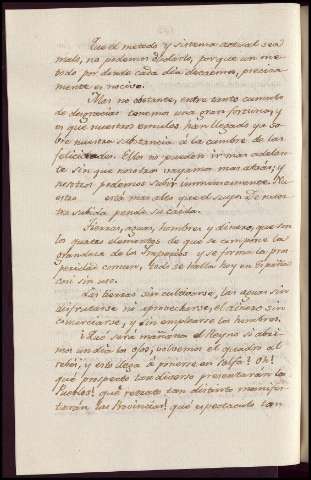 Que el metodo y sistema actual sea
malo, no podemos dudarlo, porque un me-
todo por donde cada dia decaemos, precisa-
mente es nocivo.
Mas no obstante, entre tanto cumulo
de desgracias tenemos una gran fortuna, y
es que nuestros emulos han llegado ya so-
bre nuestra substancia à la cumbre de las
felicidades. Ellos no pueden ir mas adelan-
te sin que nosotros vayamos mas atras; y
nosotros podemos subir inmensamente. Nu-
estro está mas alto que el suyo. De nues-
tra subida pende su caida.
Tierras, aguas, hombres y dinero, que son
los quatro elementos de que se compone la
grandeza de los Imperios y se forma la pros-
peridad comun, todo se halla hoy en España
casi sin uso.
Las tierras sin cultivarse, las aguas sin
disfrutarse ni aprovecharse, el dinero sin
comerciarse, y sin emplearse los hombres.
¡Qué será mañana el Reyno si abri-
mos un dia los ojos, volvemos el quadro al
rebés, y esto llega à ponerse en
qué prospecto tan diverso presentarán los
Pueblos! qué retrato tan distinto manifes-
tarán las Provincias! qué espectaculo tan